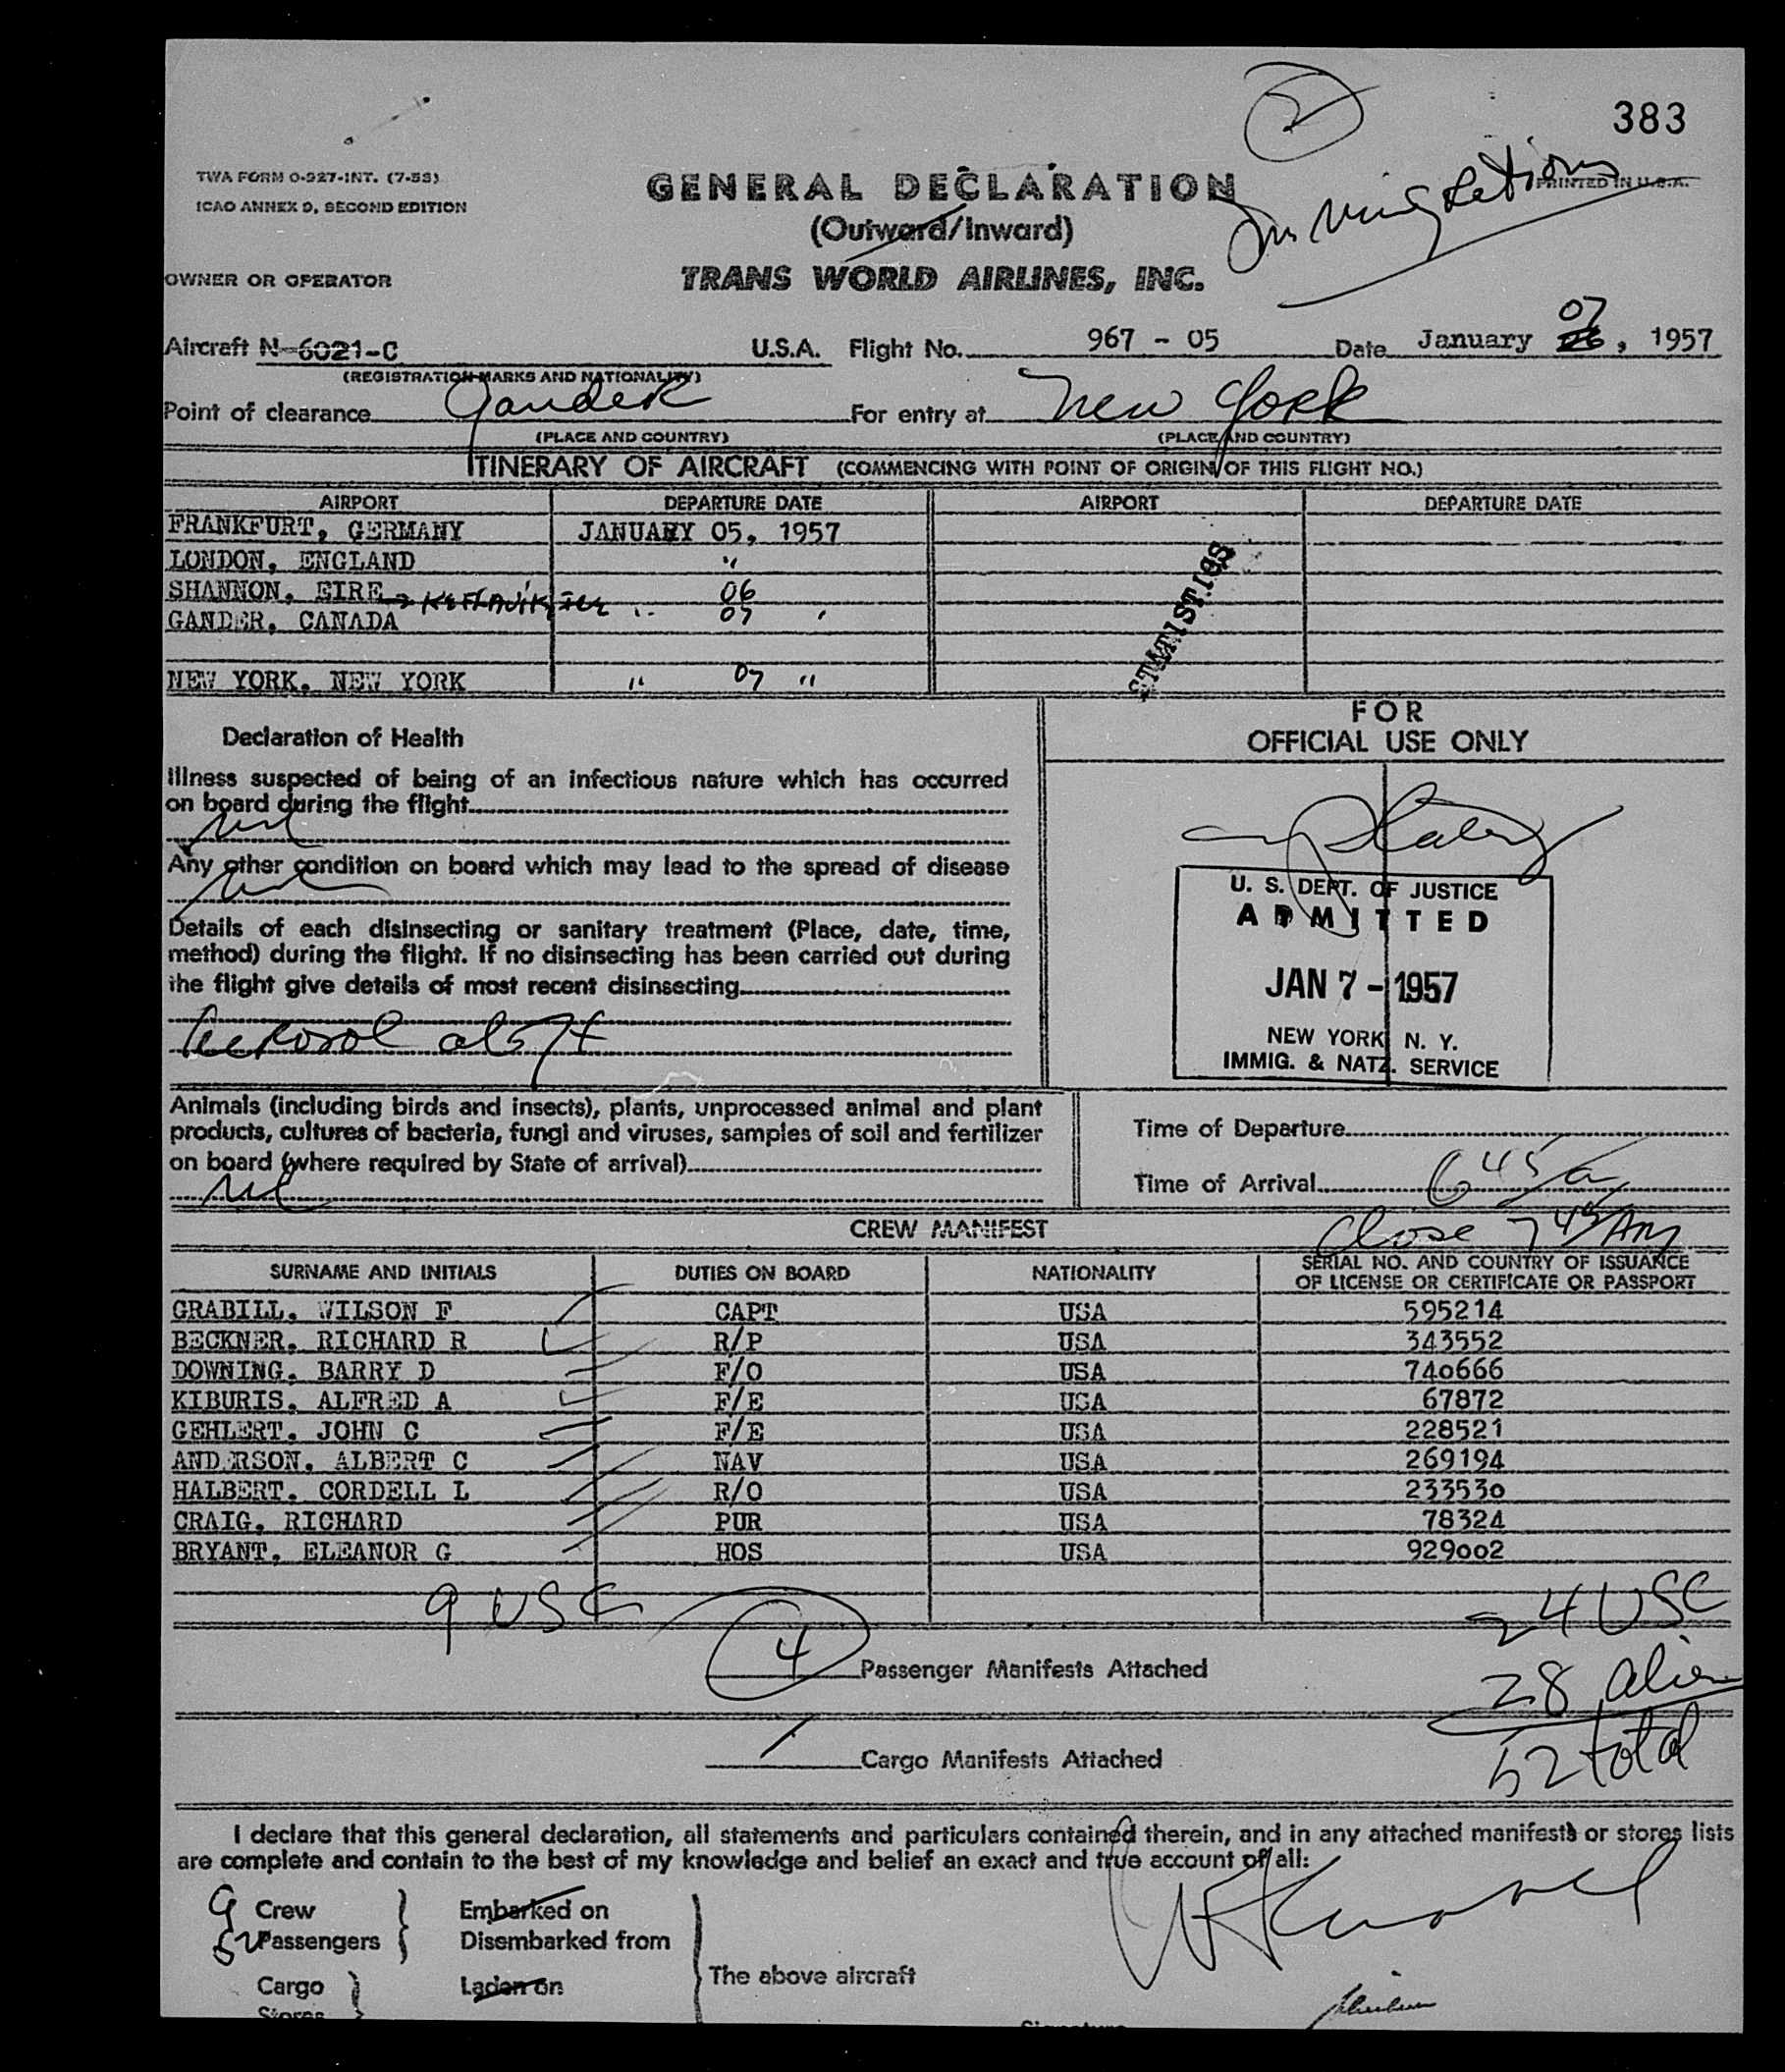 383
TWA FORM O-927-INT. (7-53)
ICAO ANNEX 9, SECOND EDITION
PRINTED IN U.S.A.
GENERAL DECLARATION
(Outward/Inward)
Immigration
OWNER OR OPERATOR
TRANS WORLD AIRLINES, INC.
Aircraft N-6021-C U.S.A. Flight No. 967 - 05 Date January 07, 1957
(REGISTRATION MARKS AND NATIONALITY)
Point of clearance Gander For entry at New York
(PLACE AND COUNTRY) (PLACE AND COUNTRY)
ITINERARY OF AIRCRAFT (COMMENCING WITH POINT OF ORIGIN OF THIS FLIGHT NO.)
AIRPORT DEPARTURE DATE AIRPORT DEPARTURE DATE
FRANKFURT, GERMANY JANUARY 05, 1957
LONDON, ENGLAND "
SHANNON, EIRE → Keflavik, Ice 06
GANDER, CANADA " 07 "
NEW YORK, NEW YORK " 07 "
STATISTICS
Declaration of Health
Illness suspected of being of an infectious nature which has occurred
on board during the flight
nil
Any other condition on board which may lead to the spread of disease
nil
Details of each disinsecting or sanitary treatment (Place, date, time,
method) during the flight. If no disinsecting has been carried out during
the flight give details of most recent disinsecting
Aerosol aloft
FOR
OFFICIAL USE ONLY
U. S. DEPT. OF JUSTICE
ADMITTED
JAN 7 - 1957
NEW YORK, N. Y.
IMMIG. & NATZ. SERVICE
Animals (including birds and insects), plants, unprocessed animal and plant
products, cultures of bacteria, fungi and viruses, samples of soil and fertilizer
on board (where required by State of arrival)
nil
Time of Departure
Time of Arrival 6 45/a
Close 7 45 AM
CREW MANIFEST
SURNAME AND INITIALS DUTIES ON BOARD NATIONALITY SERIAL NO. AND COUNTRY OF ISSUANCE
OF LICENSE OR CERTIFICATE OR PASSPORT
GRABILL, WILSON F CAPT USA 595214
BECKNER, RICHARD R R/P USA 343552
DOWNING, BARRY D F/O USA 740666
KIBURIS, ALFRED A F/E USA 67872
GEHLERT, JOHN C F/E USA 228521
ANDERSON, ALBERT C NAV USA 269194
HALBERT, CORDELL L R/O USA 233530
CRAIG, RICHARD PUR USA 78324
BRYANT, ELEANOR G HOS USA 929002
9 USC
24 USC
4 Passenger Manifests Attached
28 alien
1 Cargo Manifests Attached
52 total
I declare that this general declaration, all statements and particulars contained therein, and in any attached manifests or stores lists
are complete and contain to the best of my knowledge and belief an exact and true account of all:
9 Crew Embarked on
52 Passengers Disembarked from
The above aircraft
Cargo Laden on
Stores
Signature